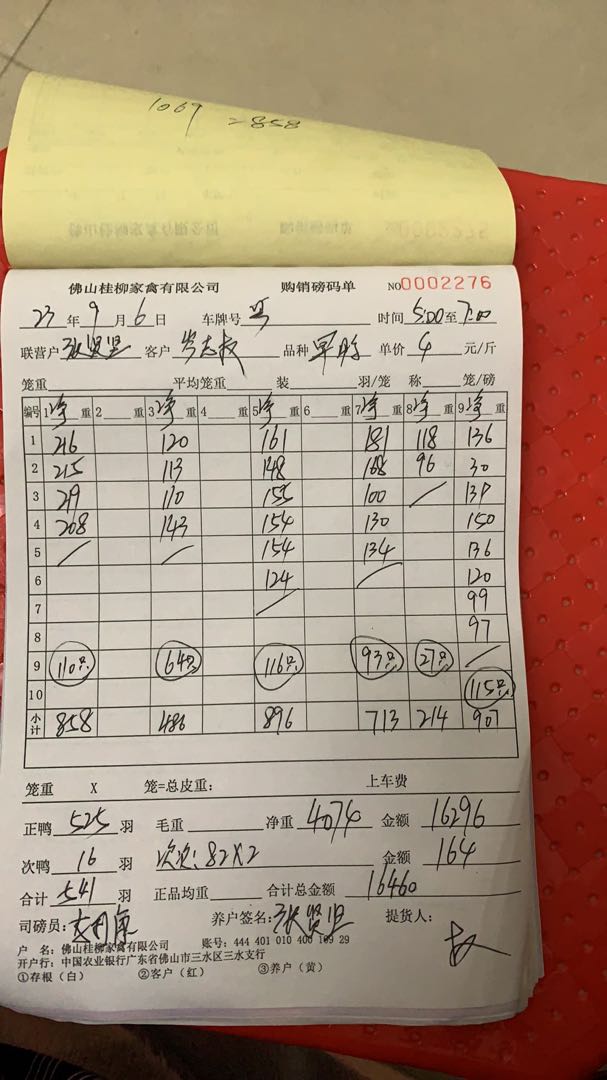 1069
=858
佛山桂柳家禽有限公司 购销磅码单 NO 0002276
23 年 9 月 6 日 车牌号 时间 5:00 至 7:00
联营户 张贤坚 客户 品种 单价 4 元/斤
笼重 平均笼重 装 羽/笼 称 笼/磅
编号 1 净 重 2 重 3 净 重 4 重 5 净 重 6 重 7 净 重 8 净 重 9 净 重
1 216 120 161 181 118 136
2 215 113 148 168 96 30
3 219 110 155 100 / 139
4 208 143 154 130 150
5 / / 154 134 136
6 124 / 120
7 / 99
8 97
9 110只 64只 116只 93只 27只 /
10 115只
小计 858 486 896 713 214 907
笼重 X 笼=总皮重: 上车费
正鸭 525 羽 毛重 净重 4074 金额 16296
次鸭 16 羽 次: 82X2 金额 164
合计 541 羽 正品均重 合计总金额 16460
司磅员: 养户签名: 张贤坚 提货人:
户 名: 佛山桂柳家禽有限公司 账号: 444 401 010 400 109 29
开户行: 中国农业银行广东省佛山市三水区三水支行
①存根（白） ②客户（红） ③养户（黄）